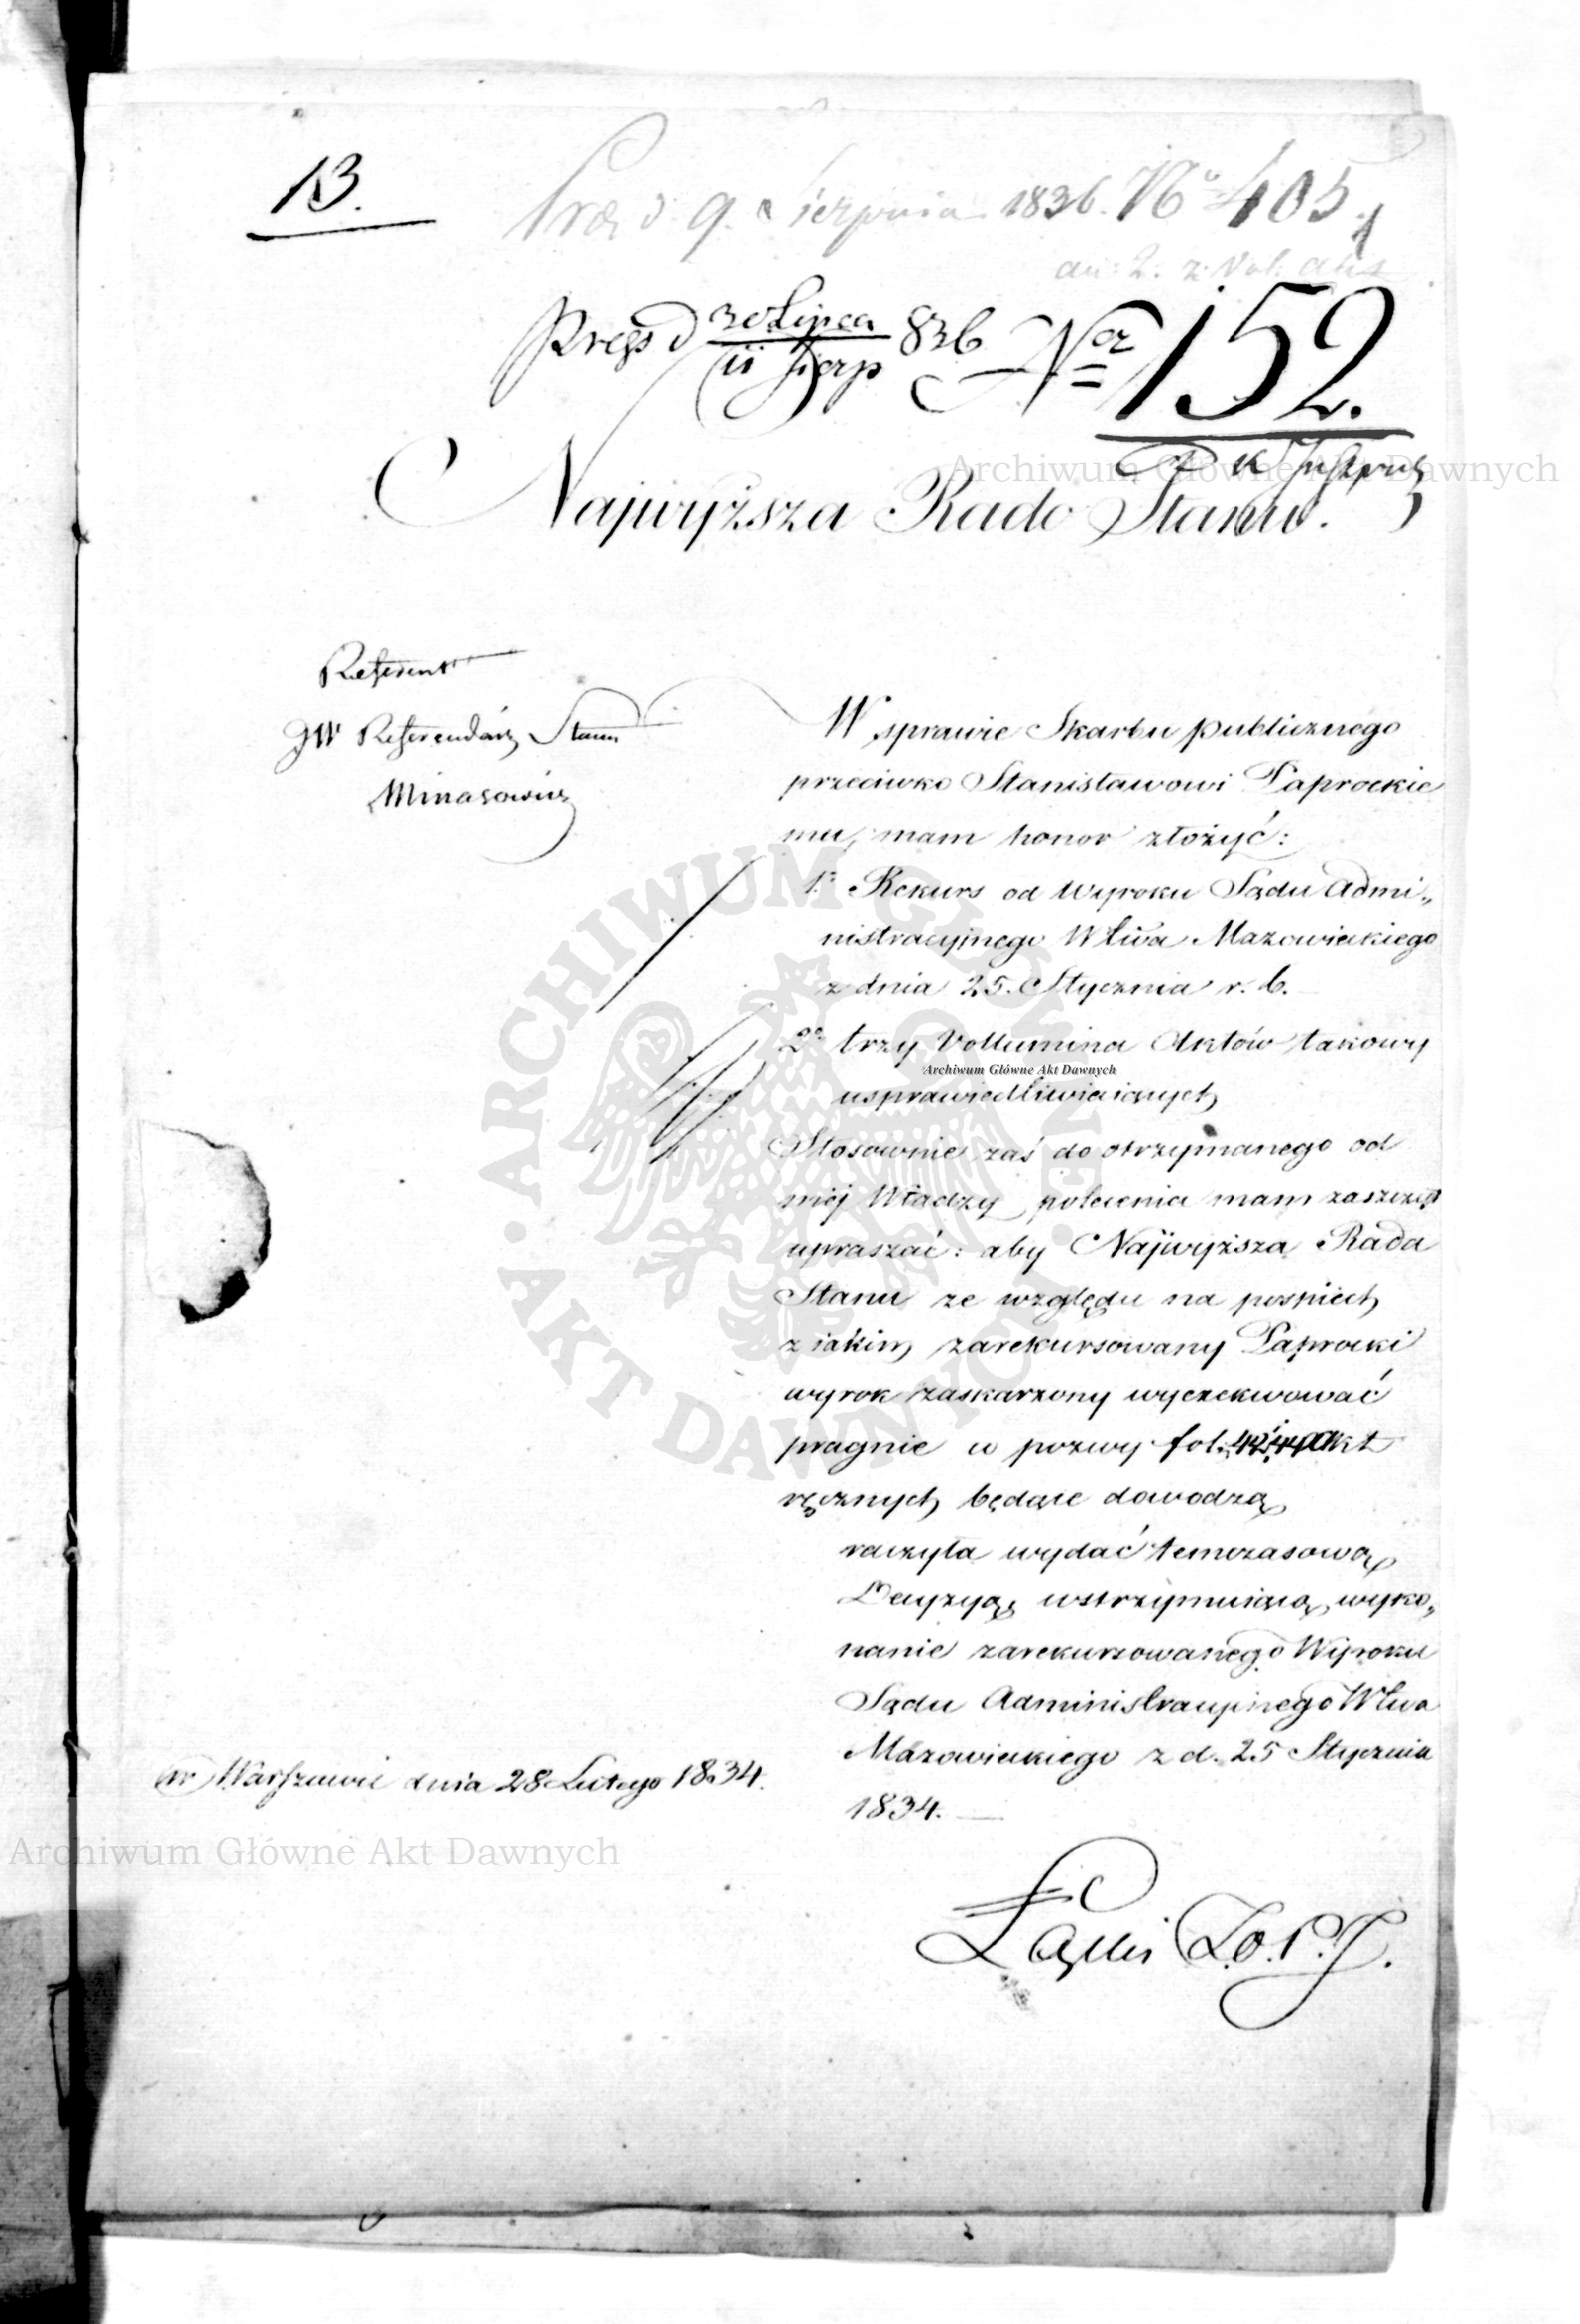 13.
Præs d. 9. Sierpnia 1836. No 405
ad: 2. z. Vol. akt
Præs d 30 Lipca 836 Ner 152.
11 Sierp
Archiwum Główne Akt Dawnych
Najwyższa Rado Stanu.
Referent
JW Referendarz Stanu
Minasowicz
W sprawie Skarbu publicznego
przeciwko Stanisławowi Paprockie
mu, mam honor złożyć:
1o Rekurs od Wyroku Sądu Admi„
nistracyjnego Wtwa Mazowieckiego
z dnia 25. Stycznia r. b.
2o trzy Vollumina Aktów takowy
Archiwum Główne Akt Dawnych
usprawiedliwiaiących
Stosownie zaś do otrzymanego od
méj Władzy polecenia mam zaszczyt
upraszać: aby Najwyższa Rada
Stanu ze względu na pospiech
z iakim zarekursowany Paprocki
wyrok zaskarzony wyexekwować
pragnie w pozwy fol: akt
ręcznych będące dowodzą
raczyła wydać temczasową
Decyzyą, wstrzymuiącą wyko„
nanie zarekursowanego Wyroku
Sądu Administracyjnego Wtwa
Mazowieckiego z d. 25 Stycznia
1834.
w Warszawie dnia 28 Lutego 1834.
Archiwum Główne Akt Dawnych
ARCHIWUM GŁÓWNE AKT DAWNYCH